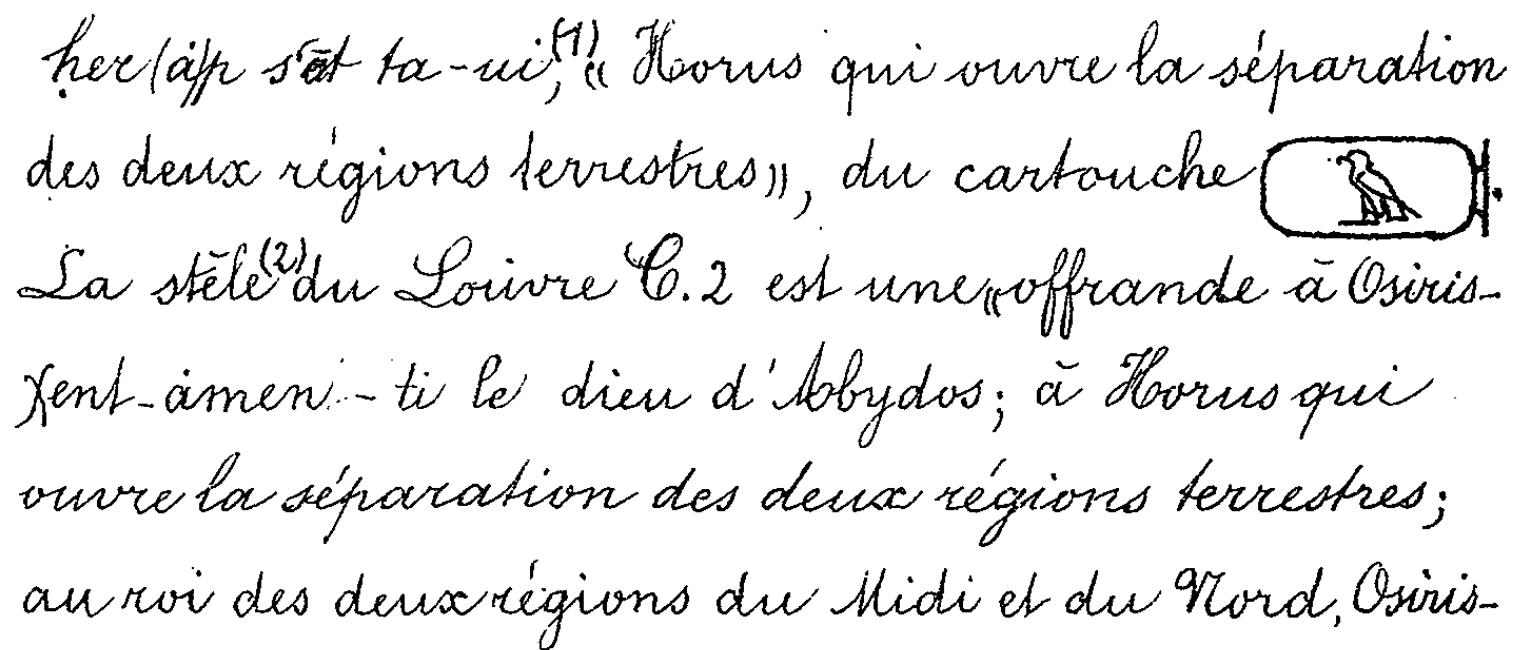 ḥer(à)p s'ăt ta-ui,⁽¹⁾ « Horus qui ouvre la séparation
des deux régions terrestres», du cartouche 
La stèle⁽²⁾ du Louvre C.2 est une «offrande à Osiris-
χent-àmen-ti le dieu d'Abydos; à Horus qui
ouvre la séparation des deux régions terrestres;
au roi des deux régions du Midi et du Nord, Osiris-